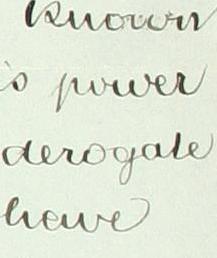 known
is power
derogate
have